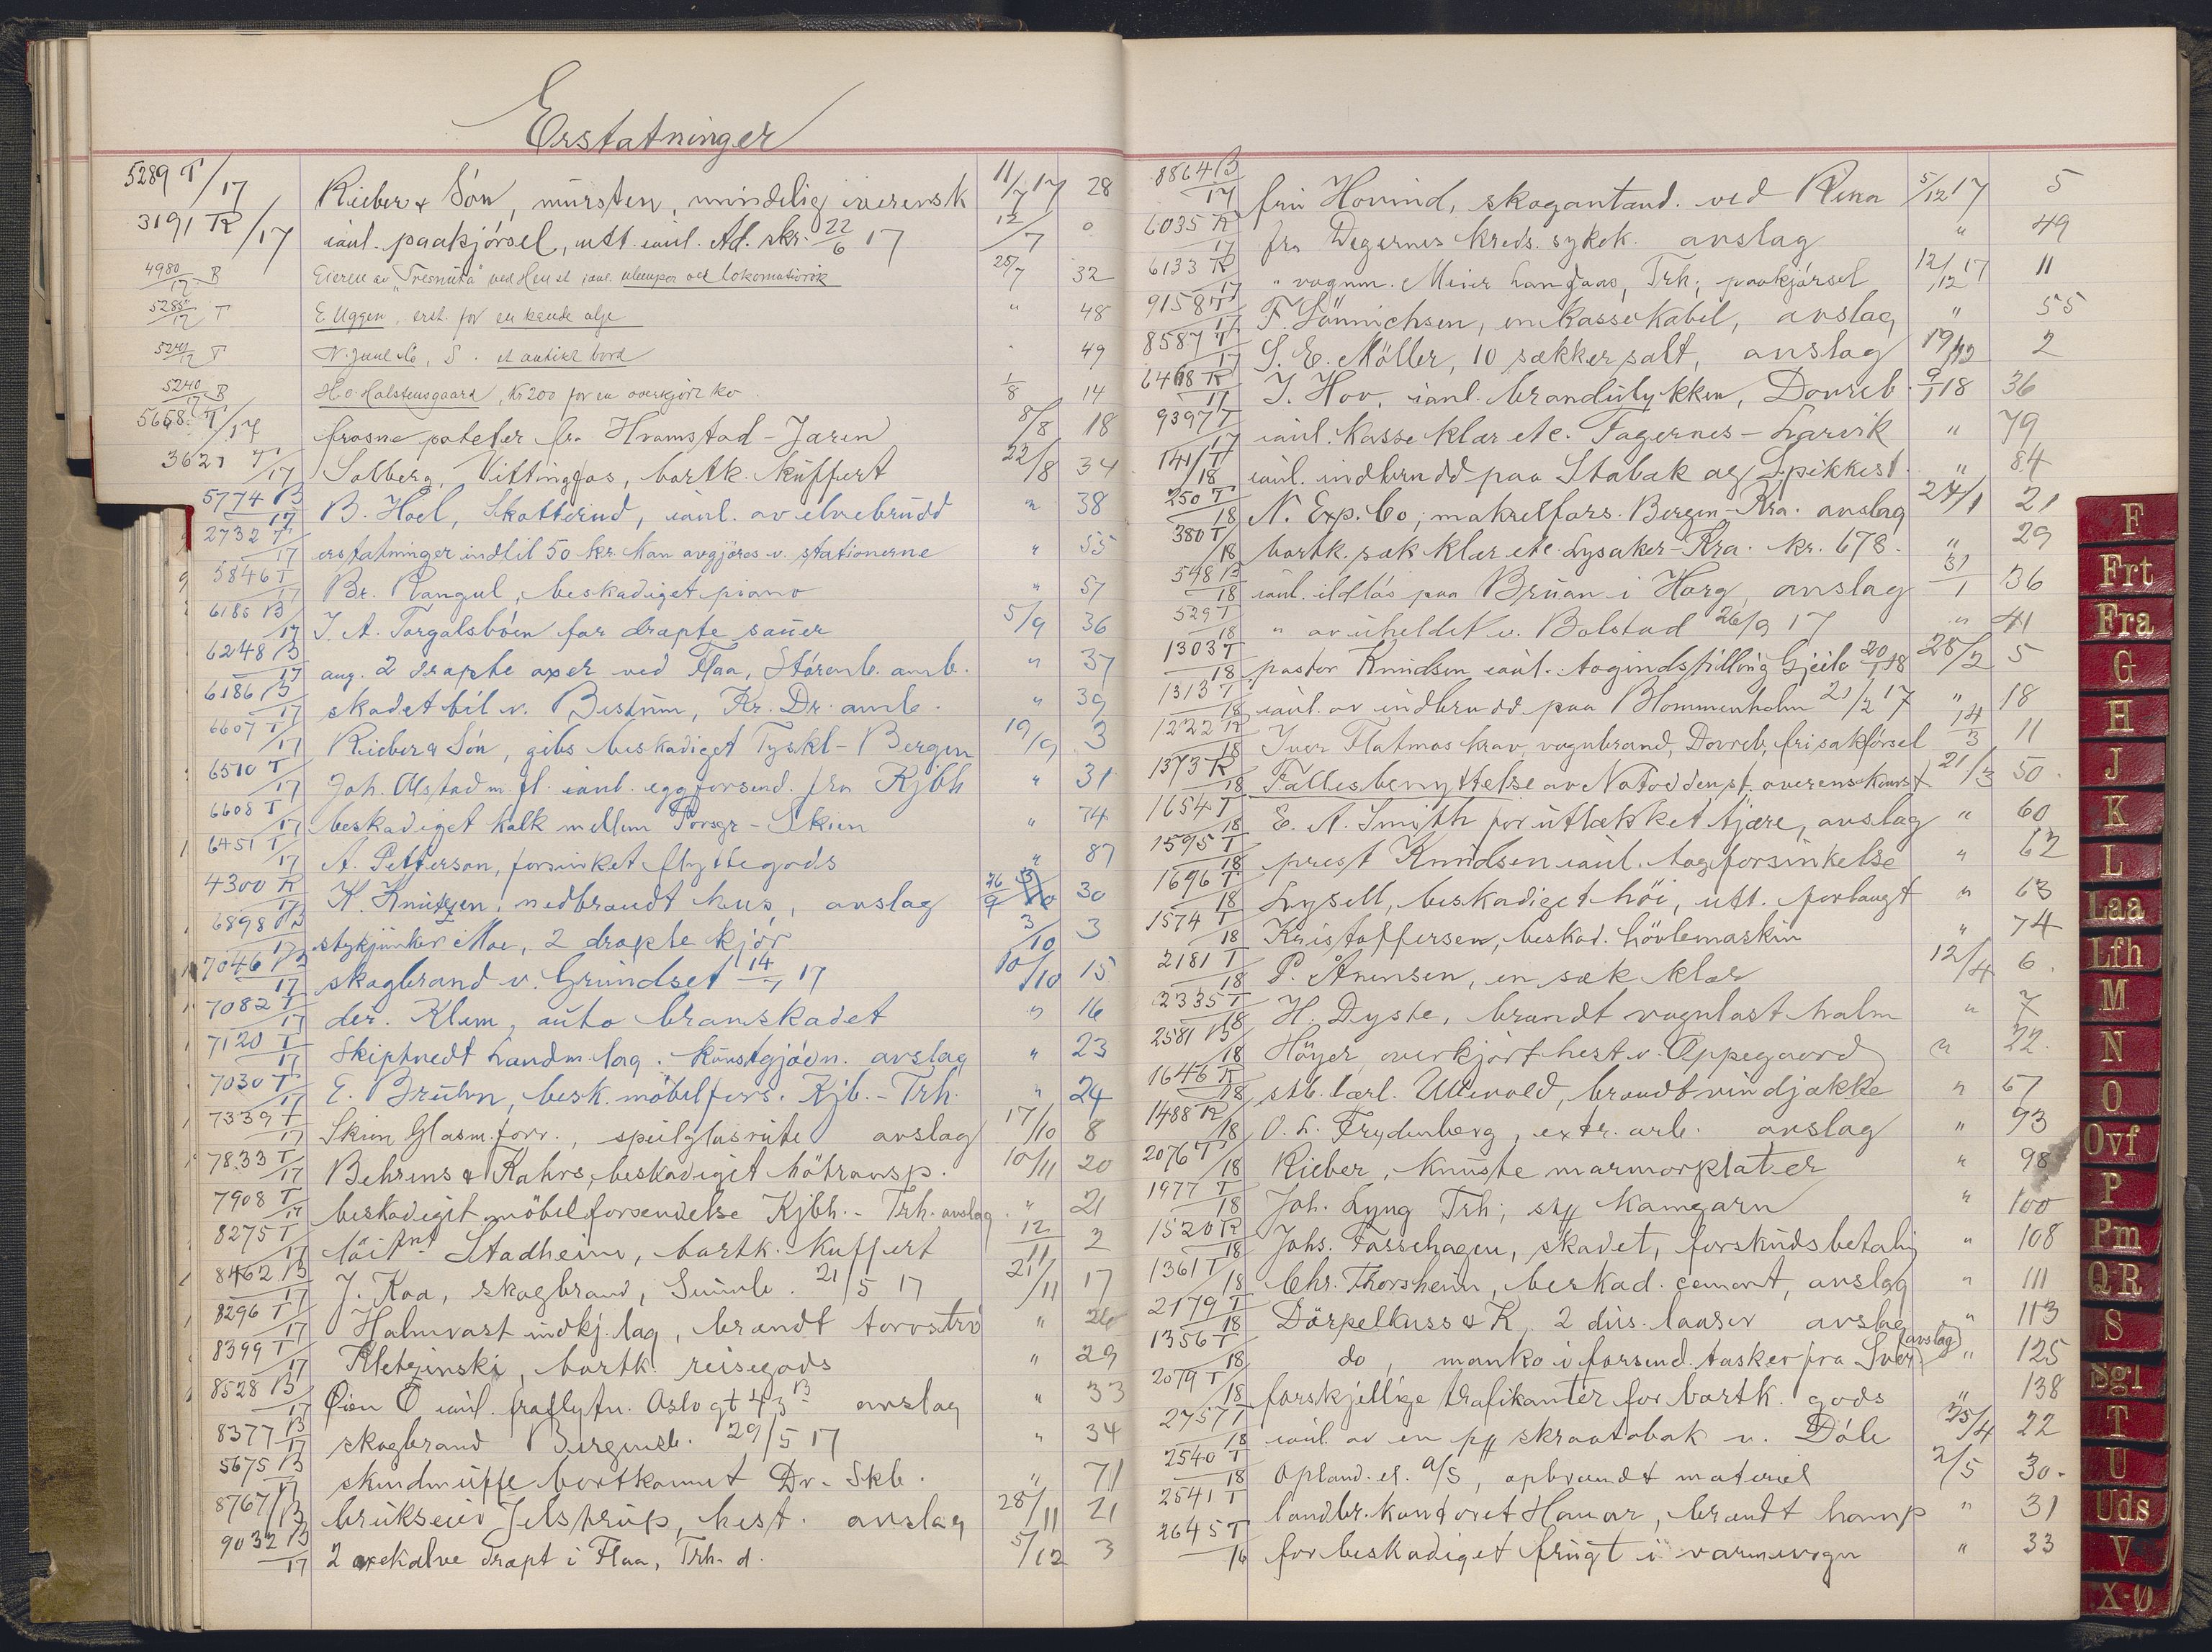 Erstatninger
5289 T/17 Rieber & Sön, mursten, mindelig overensk 11/7 17 28
3191 R/17 ianl. paakjörsel, utt. ianl. Ad. skr. 22/6 17 12/7 0
4980/17 B Eieren av "Tresnuta" ved Hen st ianl. ved lokomotivrök 25/7 32
5285/17 T E. Uggen, erst. for en kande olje " 48
5241/17 T N. Juul & Co, S. et antikt bord " 49
5240/17 B H. O. Halstensgaard, Kr 200 for en overkjört ko. 1/8 14
5658 T/17 frosne poteter fra Hvamstad - Jaren 8/8 18
3621 T/17 Solberg, Vittingfos, bortk. kuffert 22/8 34
5774 B/17 B. Hoel, Skotterud, ianl. av elvebrudd " 38
2732 T/17 erstatninger indtil 50 kr. kan avgjöres v. stationerne " 55
5846 T/17 Br. Rangul, beskadiget piano " 57
6185 B/17 J. A. Torgalsböen for dræpte sauer 5/9 36
6248 B/17 ang. 2 dræpte oxer ved Flaa, Störenb. amb. " 37
6186 B/17 skadet bil v. Bestum, Kr. Dr. amb. " 39
6607 T/17 Rieber & Sön, gibs beskadiget Tyskl - Bergen 19/9 3
6510 T/17 Joh. Alstad m. fl. ianl. eggforsend. fra Kjbh " 31
6608 T/17 beskadiget kalk mellem Porsgr - Skien " 74
6451 T/17 A. Petterson, forsinket flyttegods " 87
4300 R/17 K. Knutzen, nedbrandt hus, avslag 26/9 30
6898 B/17 stykjunker Moe, 2 dræpte kjör 3/10 3
7046 B/17 skogbrand v. Grundset 14/7 17 10/10 15
7082 T/17 dir. Klem, auto bramskadet " 16
7120 T/17 Skiptvedt Landm. lag. kunstgjödn. avslag " 23
7030 T/17 E. Bruhn, besk. möbelfors. Kjb. - Trh. " 24
7339 T/17 Skien Glasm. forr., speilglasrute avslag 17/10 8
7833 T/17 Behrens & Kahrs, beskadiget hötransp. 10/11 20
7908 T/17 beskadiget möbelforsendelse Kjbh. - Trh. avslag " 21
8275 T/17 löitnt Stadheim, bortk. kuffert 12/11 2
8462 B/17 J. Kaa, skogbrand, Sunnb. 21/5 17 21/11 17
8296 T/17 Halmrast indkj. lag, brændt torvströ " 26
8399 T/17 Kletzinski, bortk. reisegods " 29
8528 B/17 Öien Ö ianl. fraflytn. Oslo gt 43 B avslag " 33
8377 B/17 skogbrand Bergensb. 29/5 17 " 34
5675 B/17 skindmuffe bortkommet Dr. - Skb. " 71
8767/17 B brukseier Jelstrup, hest. avslag 28/11 21
9032 B/17 2 oxekalve dræpt i Flaa, Trh. d. 5/12 3
8864 B/17 fru Hovind, skogantænd. ved Rena 5/12 17 5
6035 R/17 fra Degernes kreds. sykek. avslag " 49
6133 R/17 " vognm. Meier Langaas, Trh; paakjörsel 12/12 17 11
9158 T/17 F. Sönnichsen, en kasse kabel, avslag " 55
8587 T/17 S. E. Möller, 10 sækker salt, avslag 19/12 2
6468 R/17 J. Hov, ianl. brandulykken, Dovreb. 9/1 18 36
9397 T/17 ianl. kasse klær etc. Fagernes - Larvik " 79
141/18 T ianl. indbrudd paa Stabæk og Spikkest. " 84
250 T/18 N. Exp. Co; makrelfors. Bergen - Kra. avslag 24/1 21
380 T/18 bortk. sæk klær etc. Lysaker - Kra. kr. 678. " 29
548 B/18 ianl. ildlös paa Bruan i Horg, avslag 31/1 36
529 T/18 " av uheldet v. Bolstad 26/9 17 " 41
1303 T/18 pastor Knudsen ianl. togindstilling Gjeilo 20/1 18 28/2 5
1313 T/18 ianl. av indbrudd paa Blommenholm 21/2 17 " 18
1222 R/18 Iver Flatmos krav, vognbrand, Dovreb, fri sakförsel 14/3 11
1373 R/18 Fællesbenyttelse av Notodden st. overenskomst 21/3 50.
1654 T/18 E. A. Smith for utlækket tjære, avslag " 60
1595 T/18 prest Knudsen ianl. togforsinkelse " 62
1696 T/18 Lysell, beskadiget höi, utt. forlangt " 63
1574 T/18 Kristoffersen, beskad. hövlemaskin " 74
2181 T/18 P. Ånensen, en sæk klær 12/4 6.
2335 T/18 H. Dyste, brændt vognlast halm " 7
2581 B/18 Höyer, overkjört hest v. Oppegaard " 22.
1646 R/18 stb. lærl. Ullevold, brændt vindjakke " 67
1488 R/18 O. L. Frydenberg, extr. arb. avslag " 93
2076 T/18 Rieber, knuste marmorplater " 98
1977 T/18 Joh. Lyng Trh; stk kamgarn " 100
1520 R/18 Johs. Fosschagen, skadet, forskudsbetaling " 108
1361 T/18 Chr. Thorsheim, beskad. cement, avslag " 111
2179 T/18 Dörpelkuss & K, 2 dus. laaser avslag " 113
1356 T/18 do, manko i forsend. tasker fra Sver. (avslag) " 125
2079 T/18 forskjellige trafikanter for bortk. gods " 138
2757 T/18 ianl. av en pk skraatobak v. Döle 25/4 22
2540 T/18 Opland. el. A/S, opbrændt materiel 2/5 30.
2541 T landbr. kontoret Hamar, brændt hamp " 31
2645 T/16 for beskadiget frugt i varmevogn " 33
F
Frt
Fra
G
H
J
K
L
Laa
Lfh
M
N
O
Ovf
P
Pm
QR
S
Sgl
T
U
Uds
V
X-Ø